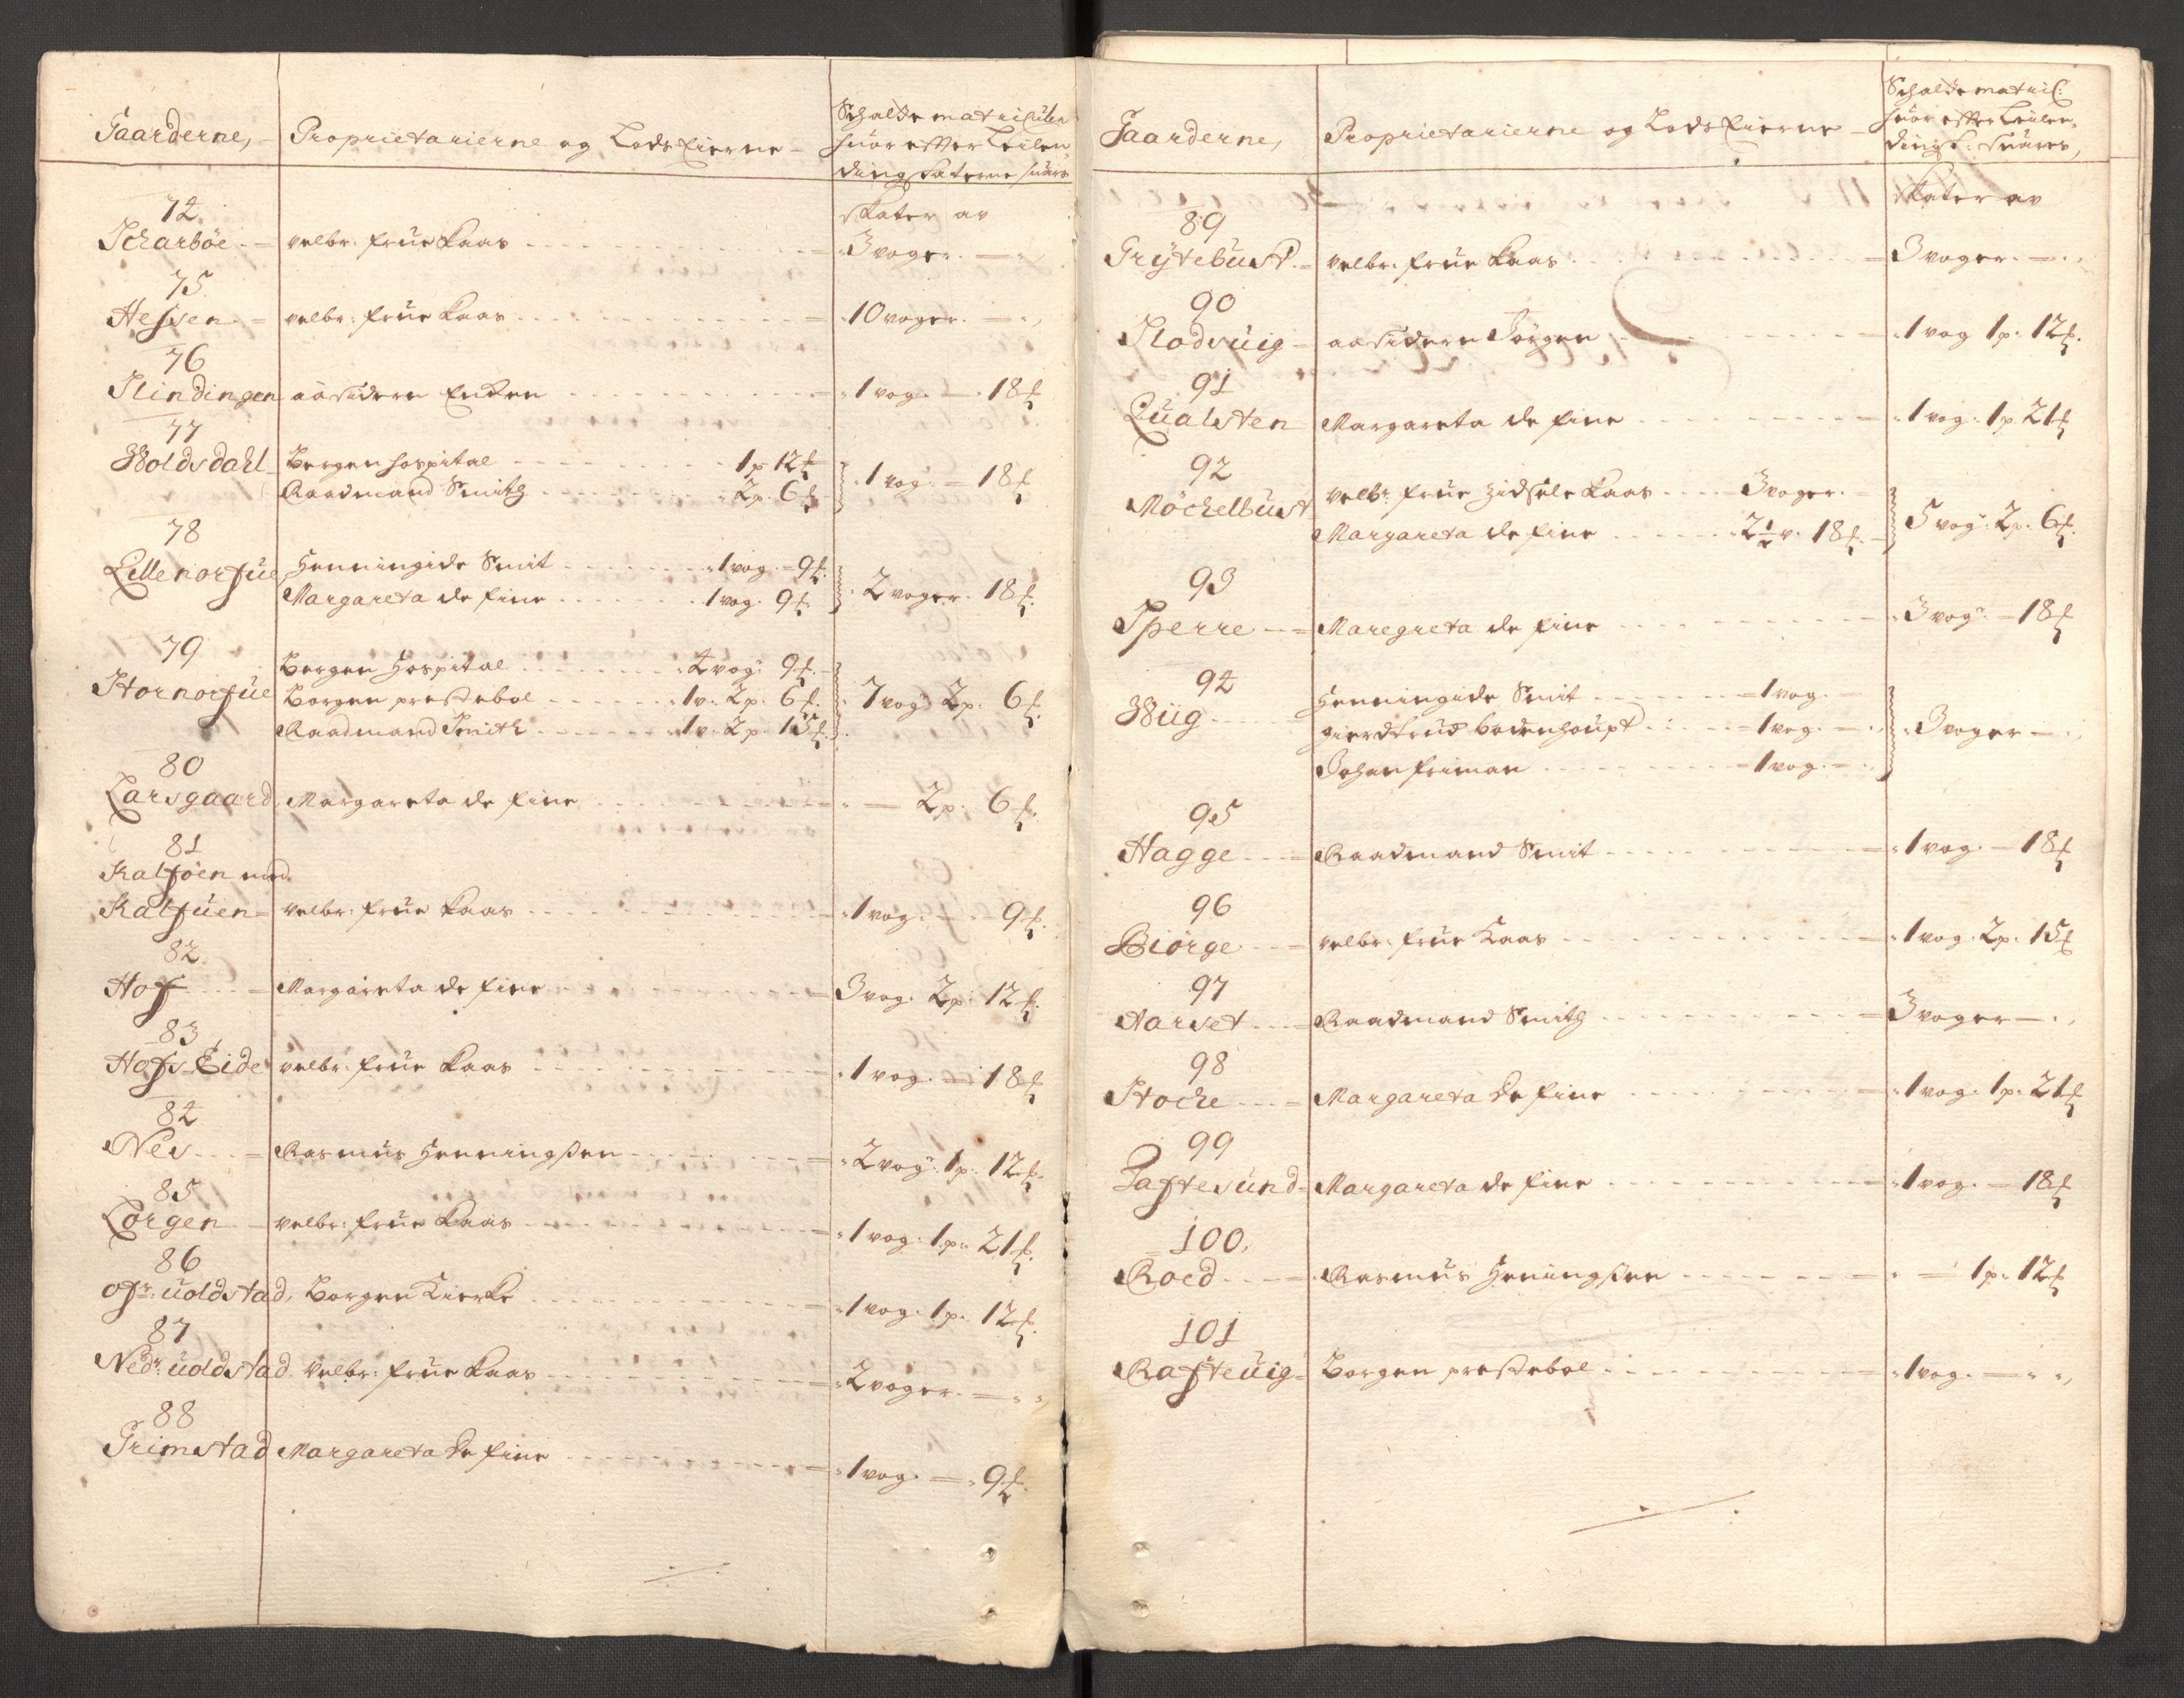 Gaarderne,
Proprietarierne og Lods Eierne
Schatte matriculen
huor effter Leilen
dings Schatterne suares
skater av
74
Scharbøe - velbr: frue Kaas - 3 voger.
75
Hessen - velbr: frue Kaas - 10 voger.
76
Slindingen - aasidere Enken - 1 vog. - 18 ℔
77
Woldsdahl - Bergen hospital - 1 p 12 ℔
Raadmand Smith - 2 p. 6 ℔ } 1 vog. - 18 ℔
78
Lille norfue - Henningide Smit - 1 vog - 9 ℔
Margareta de fine - 1 vog. 9 ℔ } 2 voger. 18 ℔
79
Stornorfue - Bergen Hospital - 4 vog: 9 ℔
Borgen prestebol - 1 v. 2 p. 6 ℔ } 7 vog 2 p. 6 ℔
Raadmand Smith - 1 v. 2 p. 15 ℔
80
Larsgaard - Margareta de fine - 2 p. 6 ℔
81
Kalføen med
Kalfuen - velbr: frue Kaas - 1 vog. - 9 ℔
82
Hof - Margareta de fine - 3 vog. 2 p: 12 ℔
83
Hofs Eide - velbr: frue Kaas - 1 vog. - 18 ℔
84
Nes - Rasmus Henningsen - 2 vog: 1 p. 12 ℔
85
Lorgen - velbr: frue Kaas - 1 vog. 1 p. 21 ℔
86
Ofr: uoldstad, Borgen Kierke - 1 vog. 1 p. 12 ℔
87
Nedr: uoldstad - velbr: frue Kaas - 2 voger.
88
Grimstad - Margareta de fine - 1 vog. - 9 ℔
Gaarderne,
Proprietarierne og Lods Eierne
Schatte matric:
huor effter Leilen
dings: suares,
skater av
89
Grytebust - velbr: frue Kaas - 3 voger.
90
Flodvuig - aasidere Jørgen - 1 vog 1 p. 12 ℔
91
Qualsten - Margareta de fine - 1 vog: 1 p 21 ℔
92
Møchelbust - velbr: frue Zidsele Kaas - 3 voger.
Margareta de fine - 2½ v. 18 ℔ } 5 vog: 2 p. 6 ℔
93
Sperre - Maregreta de fine - 3 vog: - 18 ℔
94
Wiig - Henningide Smit - 1 vog.
gierdtrud bodenhoupt - 1 vog. } 3 voger
Johan friman - 1 vog.
95
Hagge - Raadmand Smit - 1 vog. - 18 ℔
96
Biørge - velbr: frue Kaas - 1 vog. 2 p. 15 ℔
97
Aarset - Raadmand Smith - 3 voger
98
Stoche - Margareta de fine - 1 vog. 1 p. 21 ℔
99
Taftesund - Margareta de fine - 1 vog. - 18 ℔
100,
Roed - Rasmus Heningsen - 1 p. 12 ℔
101
Rafteuig - Borgen prestebol - 1 vog.